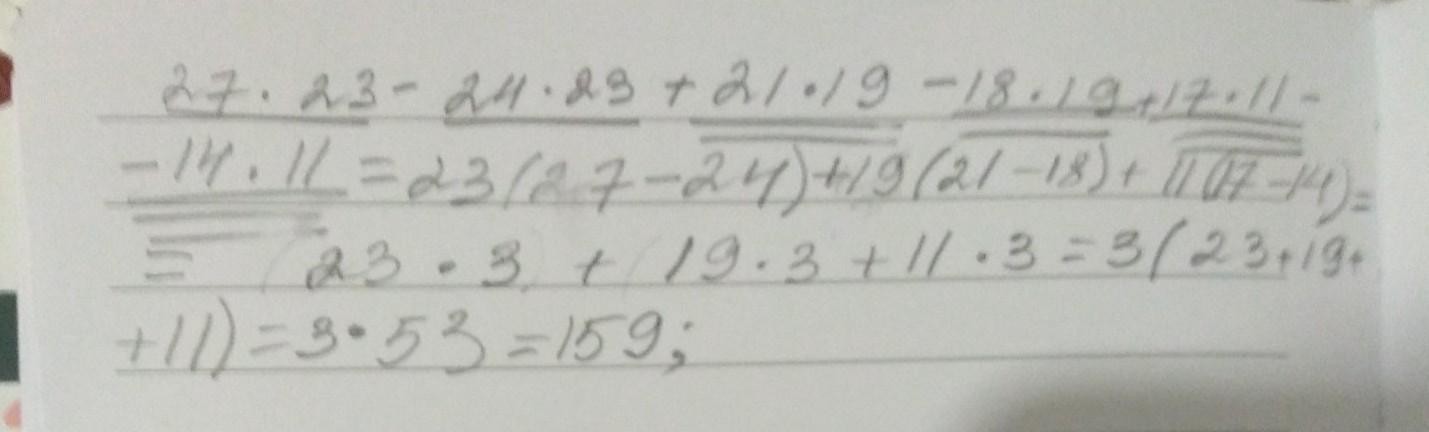 27·23-24·23+21·19-18·19+17·11-
-14·11=23(27-24)+19(21-18)+11(17-14)=
= 23·3+19·3+11·3=3(23+19+
+11)=3·53=159;